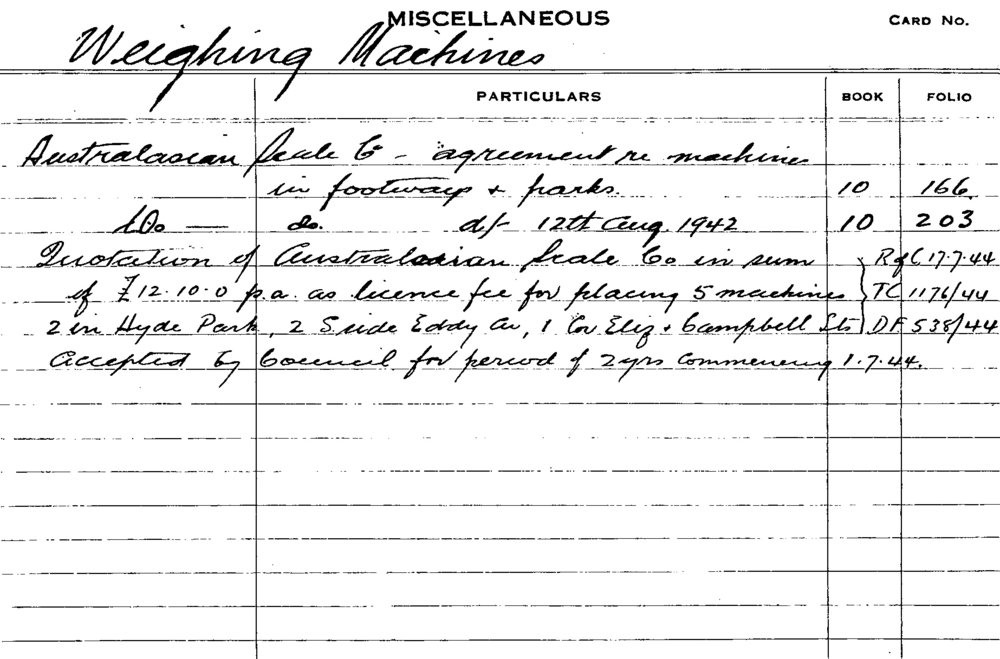 MISCELLANEOUS CARD NO.
Weighing Machines
PARTICULARS BOOK FOLIO
Australasian Scale Co - agreement re machines
in footways + parks. 10 166
Do — do. d/- 12th Aug. 1942 10 203
Quotation of Australasian Scale Co in sum R of C 17.7.44
of £12.10.0 p.a. as licence fee for placing 5 machines TC 1176/44
2 in Hyde Park, 2 S side Eddy Av, 1 Cor Eliz + Campbell Sts DF 538/44
Accepted by Council for period of 2 yrs commencing 1.7.44.